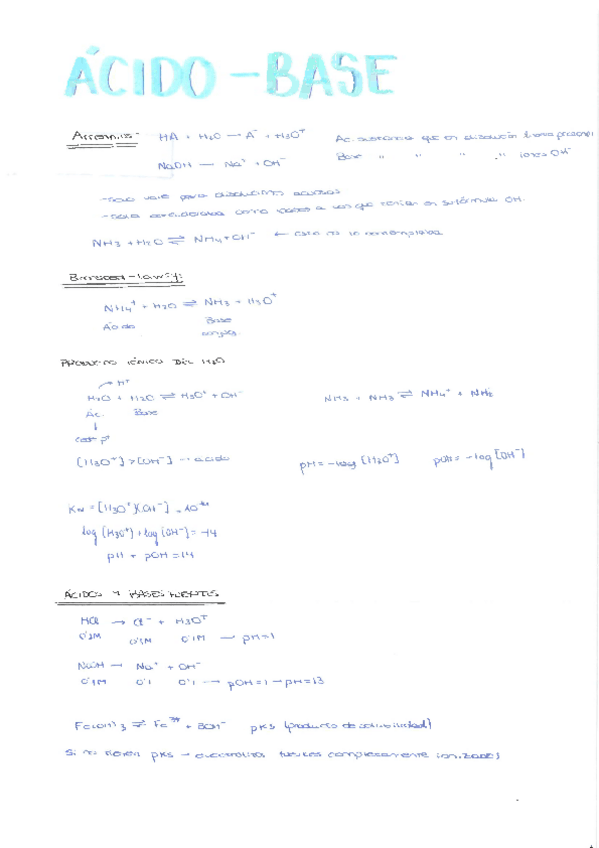 ÁCIDO-BASE
Arrhenius: HA + H2O → A⁻ + H3O⁺ Ac. sustancia que en disolución
NaOH → Na⁺ + OH⁻ Base " " " " iones OH⁻
- solo vale para disoluciones acuosas
- solo consideraba como bases a las que tenían en su fórmula OH.
NH3 + H2O ⇌ NH4 + OH⁻ ← esta no lo contemplaba
NH4⁺ + H2O ⇌ NH3 + H3O⁺
Ácido Base
conjug.
PRODUCTO IÓNICO DEL H2O
H⁺
H2O + H2O ⇌ H3O⁺ + OH⁻ NH3 + NH3 ⇌ NH4⁺ + NH2⁻
Ác. Base
↓
[H3O⁺] > [OH⁻] → ácido pH = -log [H3O⁺] pOH = -log [OH⁻]
Kw = [H3O⁺][OH⁻] =
log [H3O⁺] + log [OH⁻] = -14
pH + pOH = 14
ÁCIDOS Y BASES FUERTES
HCl → Cl⁻ + H3O⁺
0'1M 0'1M → pH = 1
NaOH → Na⁺ + OH⁻
0'1M 0'1 0'1 → pOH = 1 → pH = 13
Fe(OH)3 ⇌ Fe³⁺ + 3OH⁻ pKs (producto de solubilidad)
Si no tienen pKs → electrolitos fuertes completamente ionizados